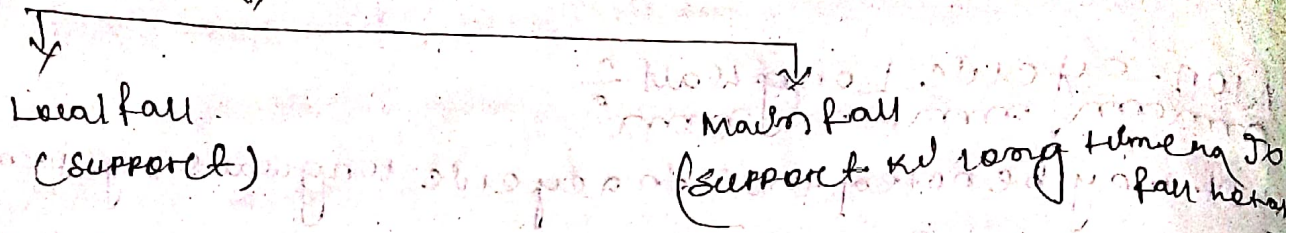 Local fall
(support)
Main fall
(support ki long time ng Jo
fall hota